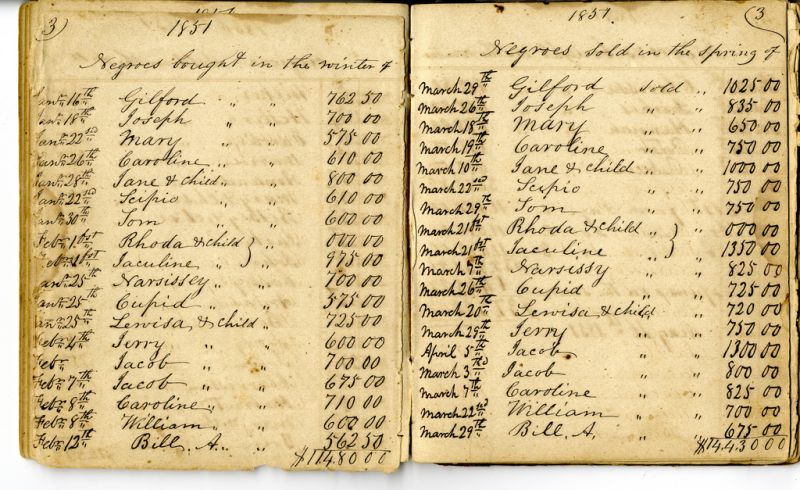 3)
1851
Negroes bought in the winter of
Jany 16th Gilford " " 762 50
Jany 18th Joseph " " 700 00
Jany 22nd Mary " " 575 00
Jany 26th Caroline " " 610 00
Jany 28th Jane & child " " 800 00
Jany 22nd Scipio " " 610 00
Jany 30th Tom " " 600 00
Feby 1st Rhoda & child } 000 00
Feby 1st Jaculine " } 975 00
Jany 25th Narsissey " " 700 00
Jany 25th Cupid " " 575 00
Jany 25th Lewisa & child " 725 00
Feby 4th Jerry " " 600 00
Feby Jacob " " 700 00
Feby 7th Jacob " " 675 00
Feby 8th Caroline " " 710 00
Feby 8th William " " 600 00
Feby 12th Bill. A. " " 562 50
$11480 00
1851.
(3
Negroes sold in the spring of
March 29th Gilford sold " 1025 00
March 26th Joseph " " 835 00
March 18th Mary " " 650 00
March 19th Caroline " " 750 00
March 10th Jane & child " 1000 00
March 22nd Scipio " " 750 00
March 29th Tom " " 750 00
March 21st Rhoda & child " } 000 00
March 21st Jaculine " } 1350 00
March 7th Narsissy " " 825 00
March 26th Cupid " " 725 00
March 20th Lewisa & child " 720 00
March 29th Jerry " " 750 00
April 5th Jacob " " 1300 00
March 3rd Jacob " " 800 00
March 7th Caroline " " 825 00
March 22nd William " " 700 00
March 29th Bill. A. " " 675 00
$14,430 00